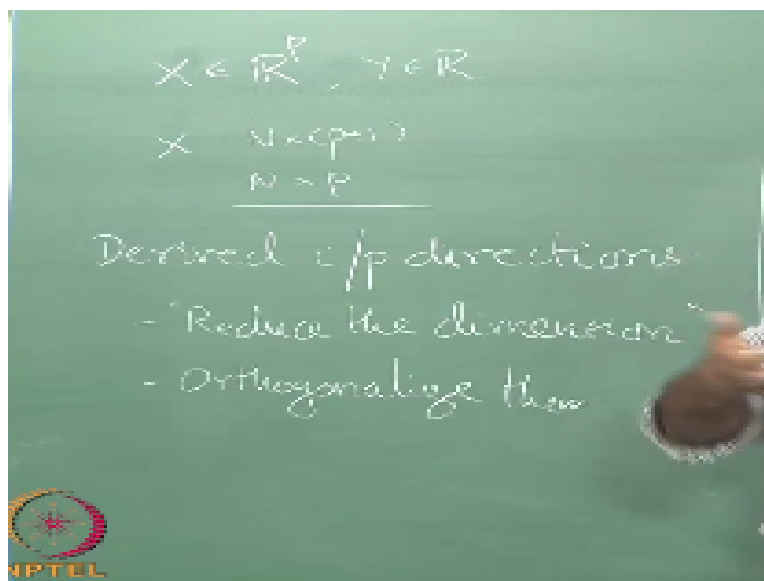 X ∈ ℝ^p, Y ∈ ℝ
X N×(p+1)
N × P
Derived i/p directions
- "Reduce the dimension"
- Orthogonalize them
NPTEL